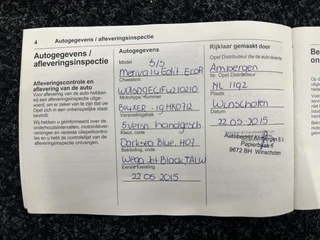 4 Autogegevens / afleveringsinspectie
Autogegevens /
afleveringsinspectie
Afleveringscontrole en
aflevering van de auto
Voor aflevering van de auto hebben
wij een afleveringsinspectie uitge-
voerd, om er zeker van te zijn dat uw
Opel zich in een onberispelijke staat
bevindt.
Wij hebben u geïnformeerd over de
onderhoudsintervallen, motorolever-
versingen en vereiste oliepeilcontroles
en u hebt de controlelijst van de
afleveringsinspectie ontvangen.
Autogegevens
Model 5/5
Meriva 1.4 Edit EcoF
Chassisnr.
Motortype/nummer
B14XER - 19HK0712
Versnellingsbak
5 versn. handgesch
Kleur, code
Darksea Blue. H07
Bekleding, code
Wega Jet Black, TALW
Eerste toelating
22 05 2015
Rijklaar gemaakt door
Opel Distributeur die de auto leverde
Ambergen
Nr. Opel Distributeur
NL 1192
Plaats
Winschoten
22 05 2015
Autobedrijf Ambergen B.V.
Papierbaan 1
9672 BH Winschoten